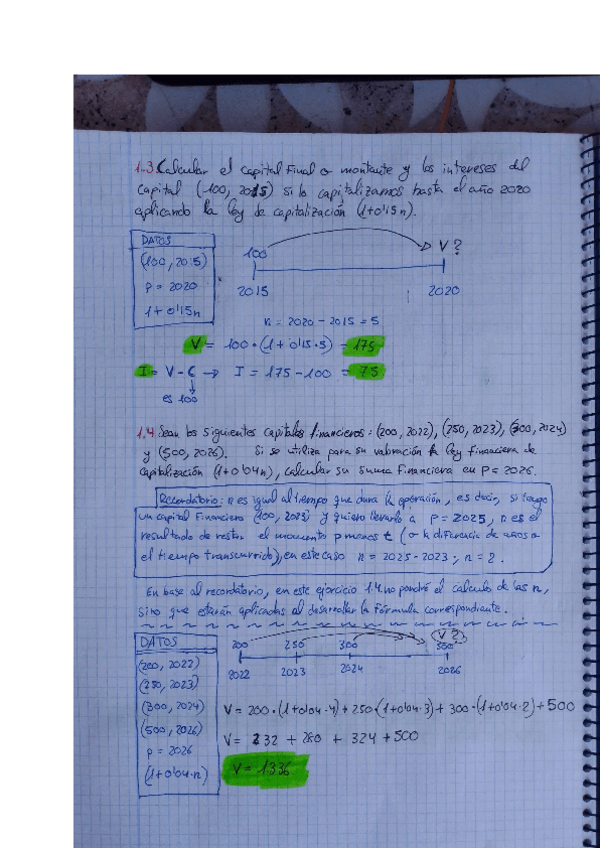 1.3. Calcular el Capital Final o montante y los intereses del
Capital (100, 2015) si lo capitalizamos hasta el año 2020
aplicando la ley de capitalización (1+0'15n).
DATOS
(100, 2015)
P = 2020
1+0'15n
100 V?
2015 2020
n = 2020 - 2015 = 5
V = 100·(1+0'15·5) = 175
I = V - C → I = 175 - 100 = 75
es 100
1.4. Sean los siguientes capitales financieros: (200, 2022), (250, 2023), (300, 2024)
y (500, 2026). Si se utiliza para su valoración la ley financiera de
capitalización (1+0'04n), calcular su suma financiera en P = 2026.
Recordatorio: n es igual al tiempo que dura la operación, es decir, si tengo
un capital Financiero (100, 2023) y quiero llevarlo a P = 2025, n es el
resultado de restar el momento p menos t (o la diferencia de años o
el tiempo transcurrido), en este caso n = 2025 - 2023 ; n = 2.
En base al recordatorio, en este ejercicio 1.4. no pondré el calculo de las n,
sino que estarán aplicadas al desarrollar la fórmula correspondiente.
DATOS
(200, 2022)
(250, 2023)
(300, 2024)
(500, 2026)
P = 2026
(1+0'04·n)
V?
200 250 300 500
2022 2023 2024 2026
V = 200·(1+0'04·4) + 250·(1+0'04·3) + 300·(1+0'04·2) + 500
V = 232 + 280 + 324 + 500
V = 1.336